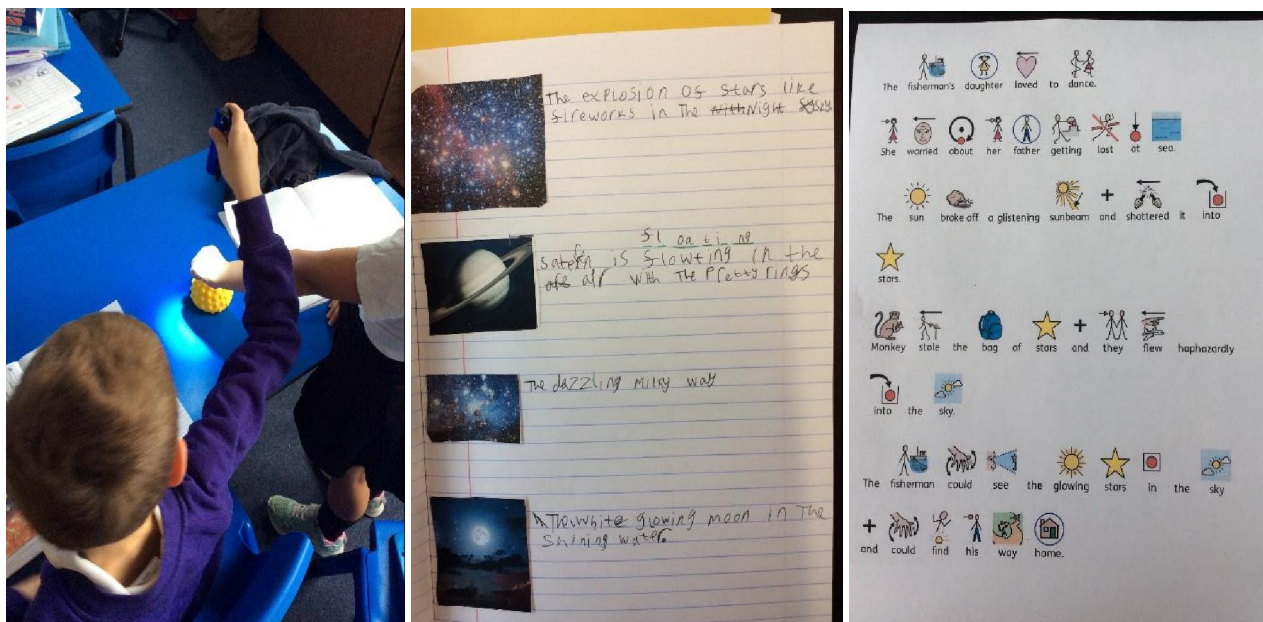 The explosion of stars like
fireworks in the Night Sky
fl oa t i ng
Satern is flowting in the
air with the Pretty rings
The dazzling milky way
The white glowing moon in the
Shining water.
The fisherman's daughter loved to dance.
She worried about her father getting lost at sea.
The sun broke off a glistening sunbeam and shattered it into
stars.
Monkey stole the bag of stars and they flew haphazardly
into the sky.
The fisherman could see the glowing stars in the sky
and could find his way home.